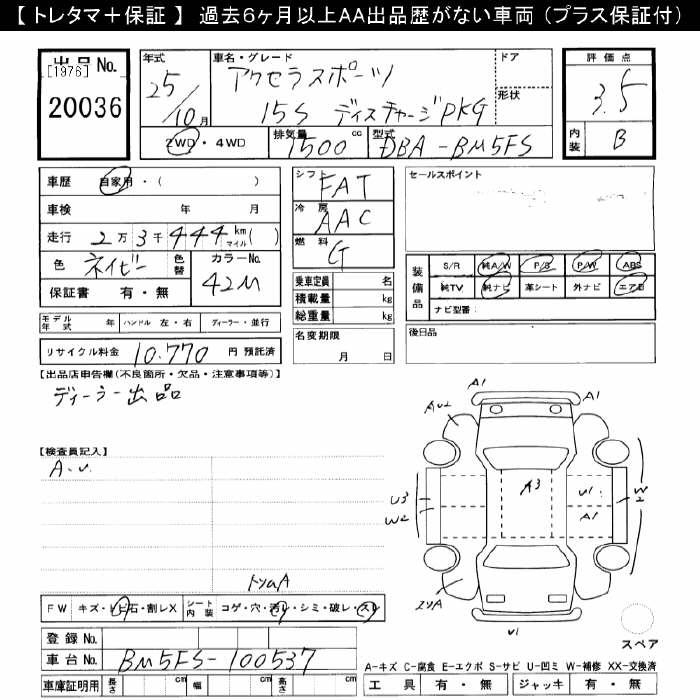 【 トレタマ＋保証 】 過去6ヶ月以上AA出品歴がない車両 (プラス保証付)
出品 No.
[1976]
20036
年式
25/10月
車名・グレード
アクセラスポーツ
15S ディスチャージPKG
ドア
形状
評価点
3.5
内装 B
2WD・4WD
排気量 1500 cc
型式 DBA-BM5FS
車歴 自家用・( )
車検 年 月
走行 2万3千444 km マイル( )
色 ネイビー
色替
カラーNo. 42M
保証書 有・無
シフト FAT
冷房 AAC
燃料 G
乗車定員 名
積載量 kg
総重量 kg
名変期限
月 日
セールスポイント
装備品
S/R 純A/W P/S P/W ABS
純TV 純ナビ 革シート 外ナビ エアB
ナビ型番:
後日品
モデル年式 年 ハンドル 左・右 ディーラー・並行
リサイクル料金 10,770 円 預託済
【出品店申告欄(不良箇所・欠品・注意事項等)】
ディーラー出品
【検査員記入】
A・U.
FW キズ・トビ石・割レX
シート内装 コゲ・穴・汚レ・シミ・破レ・スレ
登録 No.
車台 No. BM5FS-100537
車庫証明用 長さ cm 幅 cm 高さ cm
A1
A1
AU2
A3
U1
A1
W2
U3
W2
U1
スペア
A-キズ C-腐食 E-エクボ S-サビ U-凹ミ W-補修 XX-交換済
工具 有・無 ジャッキ 有・無